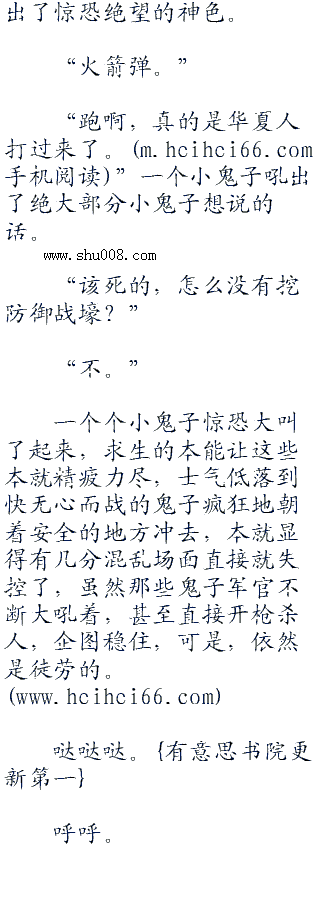 出了惊恐绝望的神色。
“火箭弹。”
“跑啊，真的是华夏人
打过来了。(m.hcihci66.com
手机阅读)”一个小鬼子吼出
了绝大部分小鬼子想说的
话。
www.shu008.com
“该死的，怎么没有挖
防御战壕？”
“不。”
一个个小鬼子惊恐大叫
了起来，求生的本能让这些
本就精疲力尽，士气低落到
快无心而战的鬼子疯狂地朝
着安全的地方冲去，本就显
得有几分混乱场面直接就失
控了，虽然那些鬼子军官不
断大吼着，甚至直接开枪杀
人，企图稳住，可是，依然
是徒劳的。
(www.hcihci66.com)
哒哒哒。{有意思书院更
新第一}
呼呼。